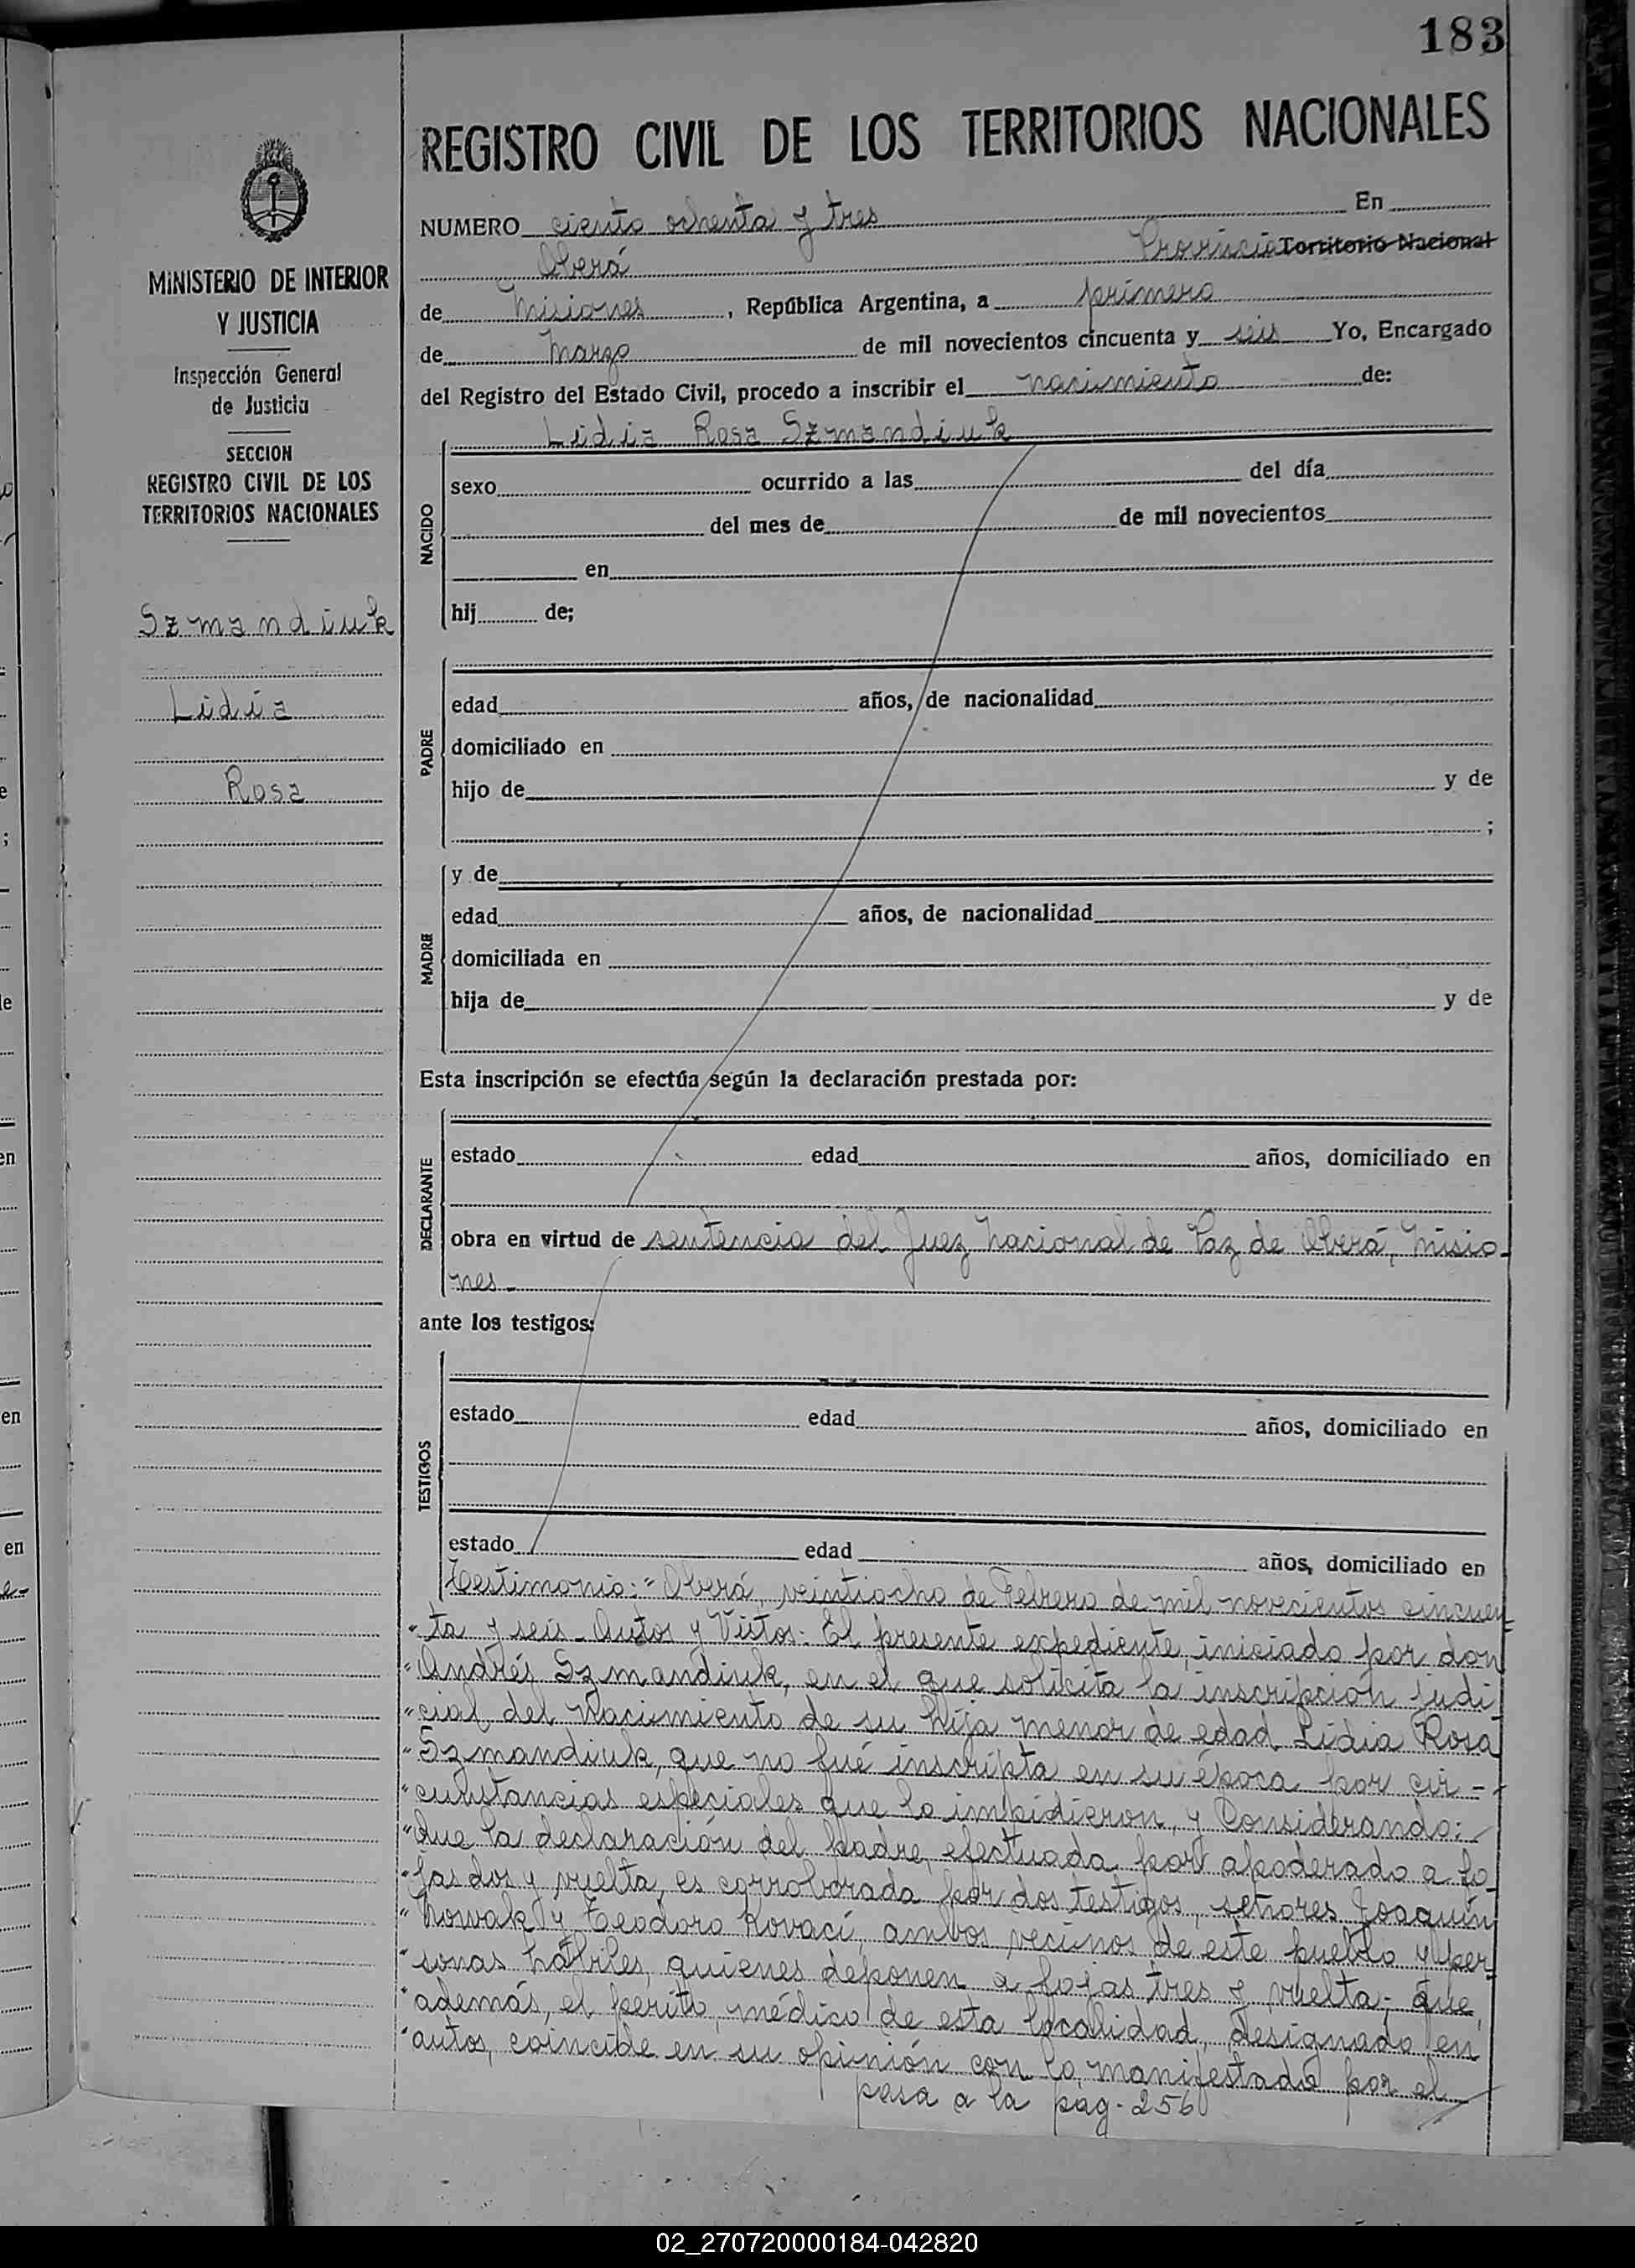 183
REGISTRO CIVIL DE LOS TERRITORIOS NACIONALES
MINISTERIO DE INTERIOR
Y JUSTICIA
Inspección General
de Justicia
SECCION
REGISTRO CIVIL DE LOS
TERRITORIOS NACIONALES
Szmandiuk
Lidia
Rosa
NUMERO ciento ochenta y tres En
Oberá Provincia Territorio Nacional
de Misiones, República Argentina, a primero
de Marzo de mil novecientos cincuenta y seis Yo, Encargado
del Registro del Estado Civil, procedo a inscribir el nacimiento de:
Lidia Rosa Szmandiuk
NACIDO
sexo ocurrido a las del día
del mes de de mil novecientos
en
hij de;
PADRE
edad años, de nacionalidad
domiciliado en
hijo de y de
;
MADRE
y de
edad años, de nacionalidad
domiciliada en
hija de y de
Esta inscripción se efectúa según la declaración prestada por:
DECLARANTE
estado edad años, domiciliado en
obra en virtud de sentencia del Juez Nacional de Paz de Oberá, Misio-
nes-
ante los testigos:
TESTIGOS
estado edad años, domiciliado en
estado edad años, domiciliado en
Testimonio: "Oberá, veintiocho de Febrero de mil novecientos cincuen-
"ta y seis- Autos y Vistos: El presente expediente, iniciado por don
"Andrés Szmandiuk, en el que solicita la inscripción judi
"cial del Nacimiento de su hija menor de edad Lidia Rosa
"Szmandiuk, que no fué inscripta en su época por cir-
"cunstancias especiales que lo impidieron, y Considerando:
"Que la declaración del padre, efectuada por apoderado a fo
"jas dos y vuelta, es corroborada por dos testigos, señores Joaquín
"Nowak y Teodoro Kovaci, ambos vecinos de este pueblo y per
"sonas hábiles, quienes deponen a fojas tres y vuelta; que
"además, el perito médico de esta localidad, designado en
"autos, coincide en su opinión con lo manifestado por el
pasa a la pág. 256
02_270720000184-042820